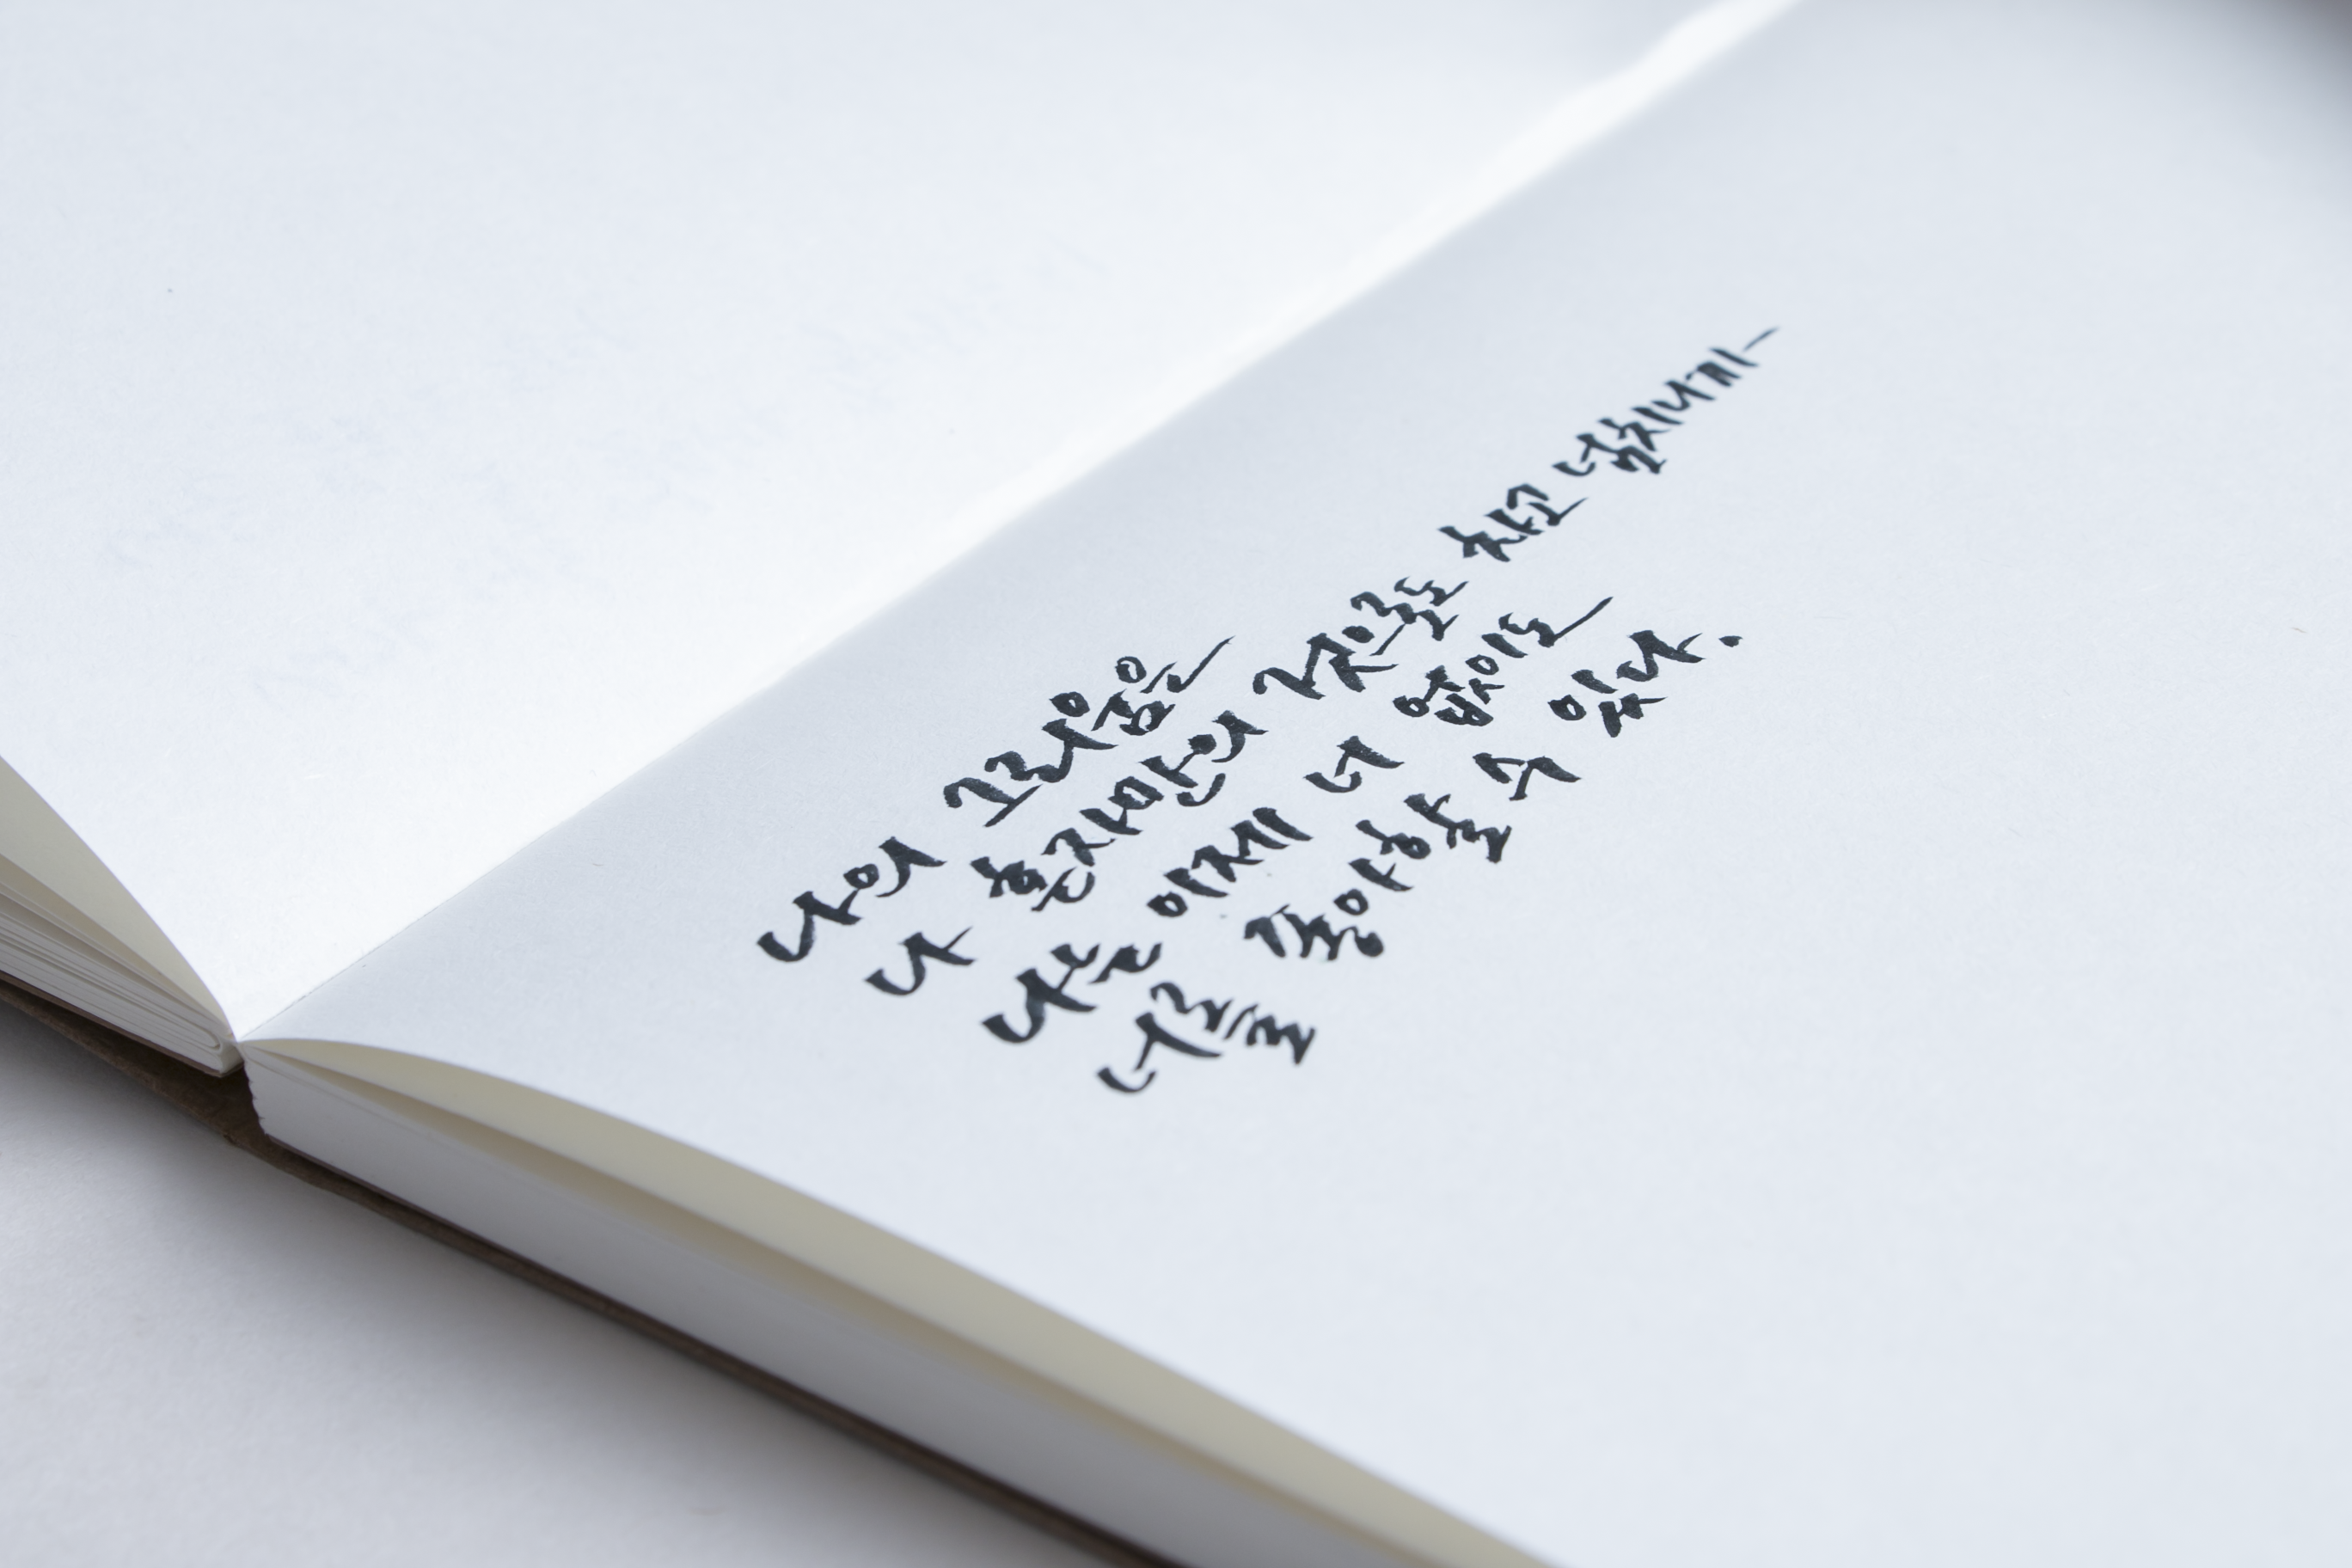 나의 그리움은
나 혼자만의 것으로도 차고 넘치니까
나는 이제 너 없이도
너를 좋아할 수 있다.